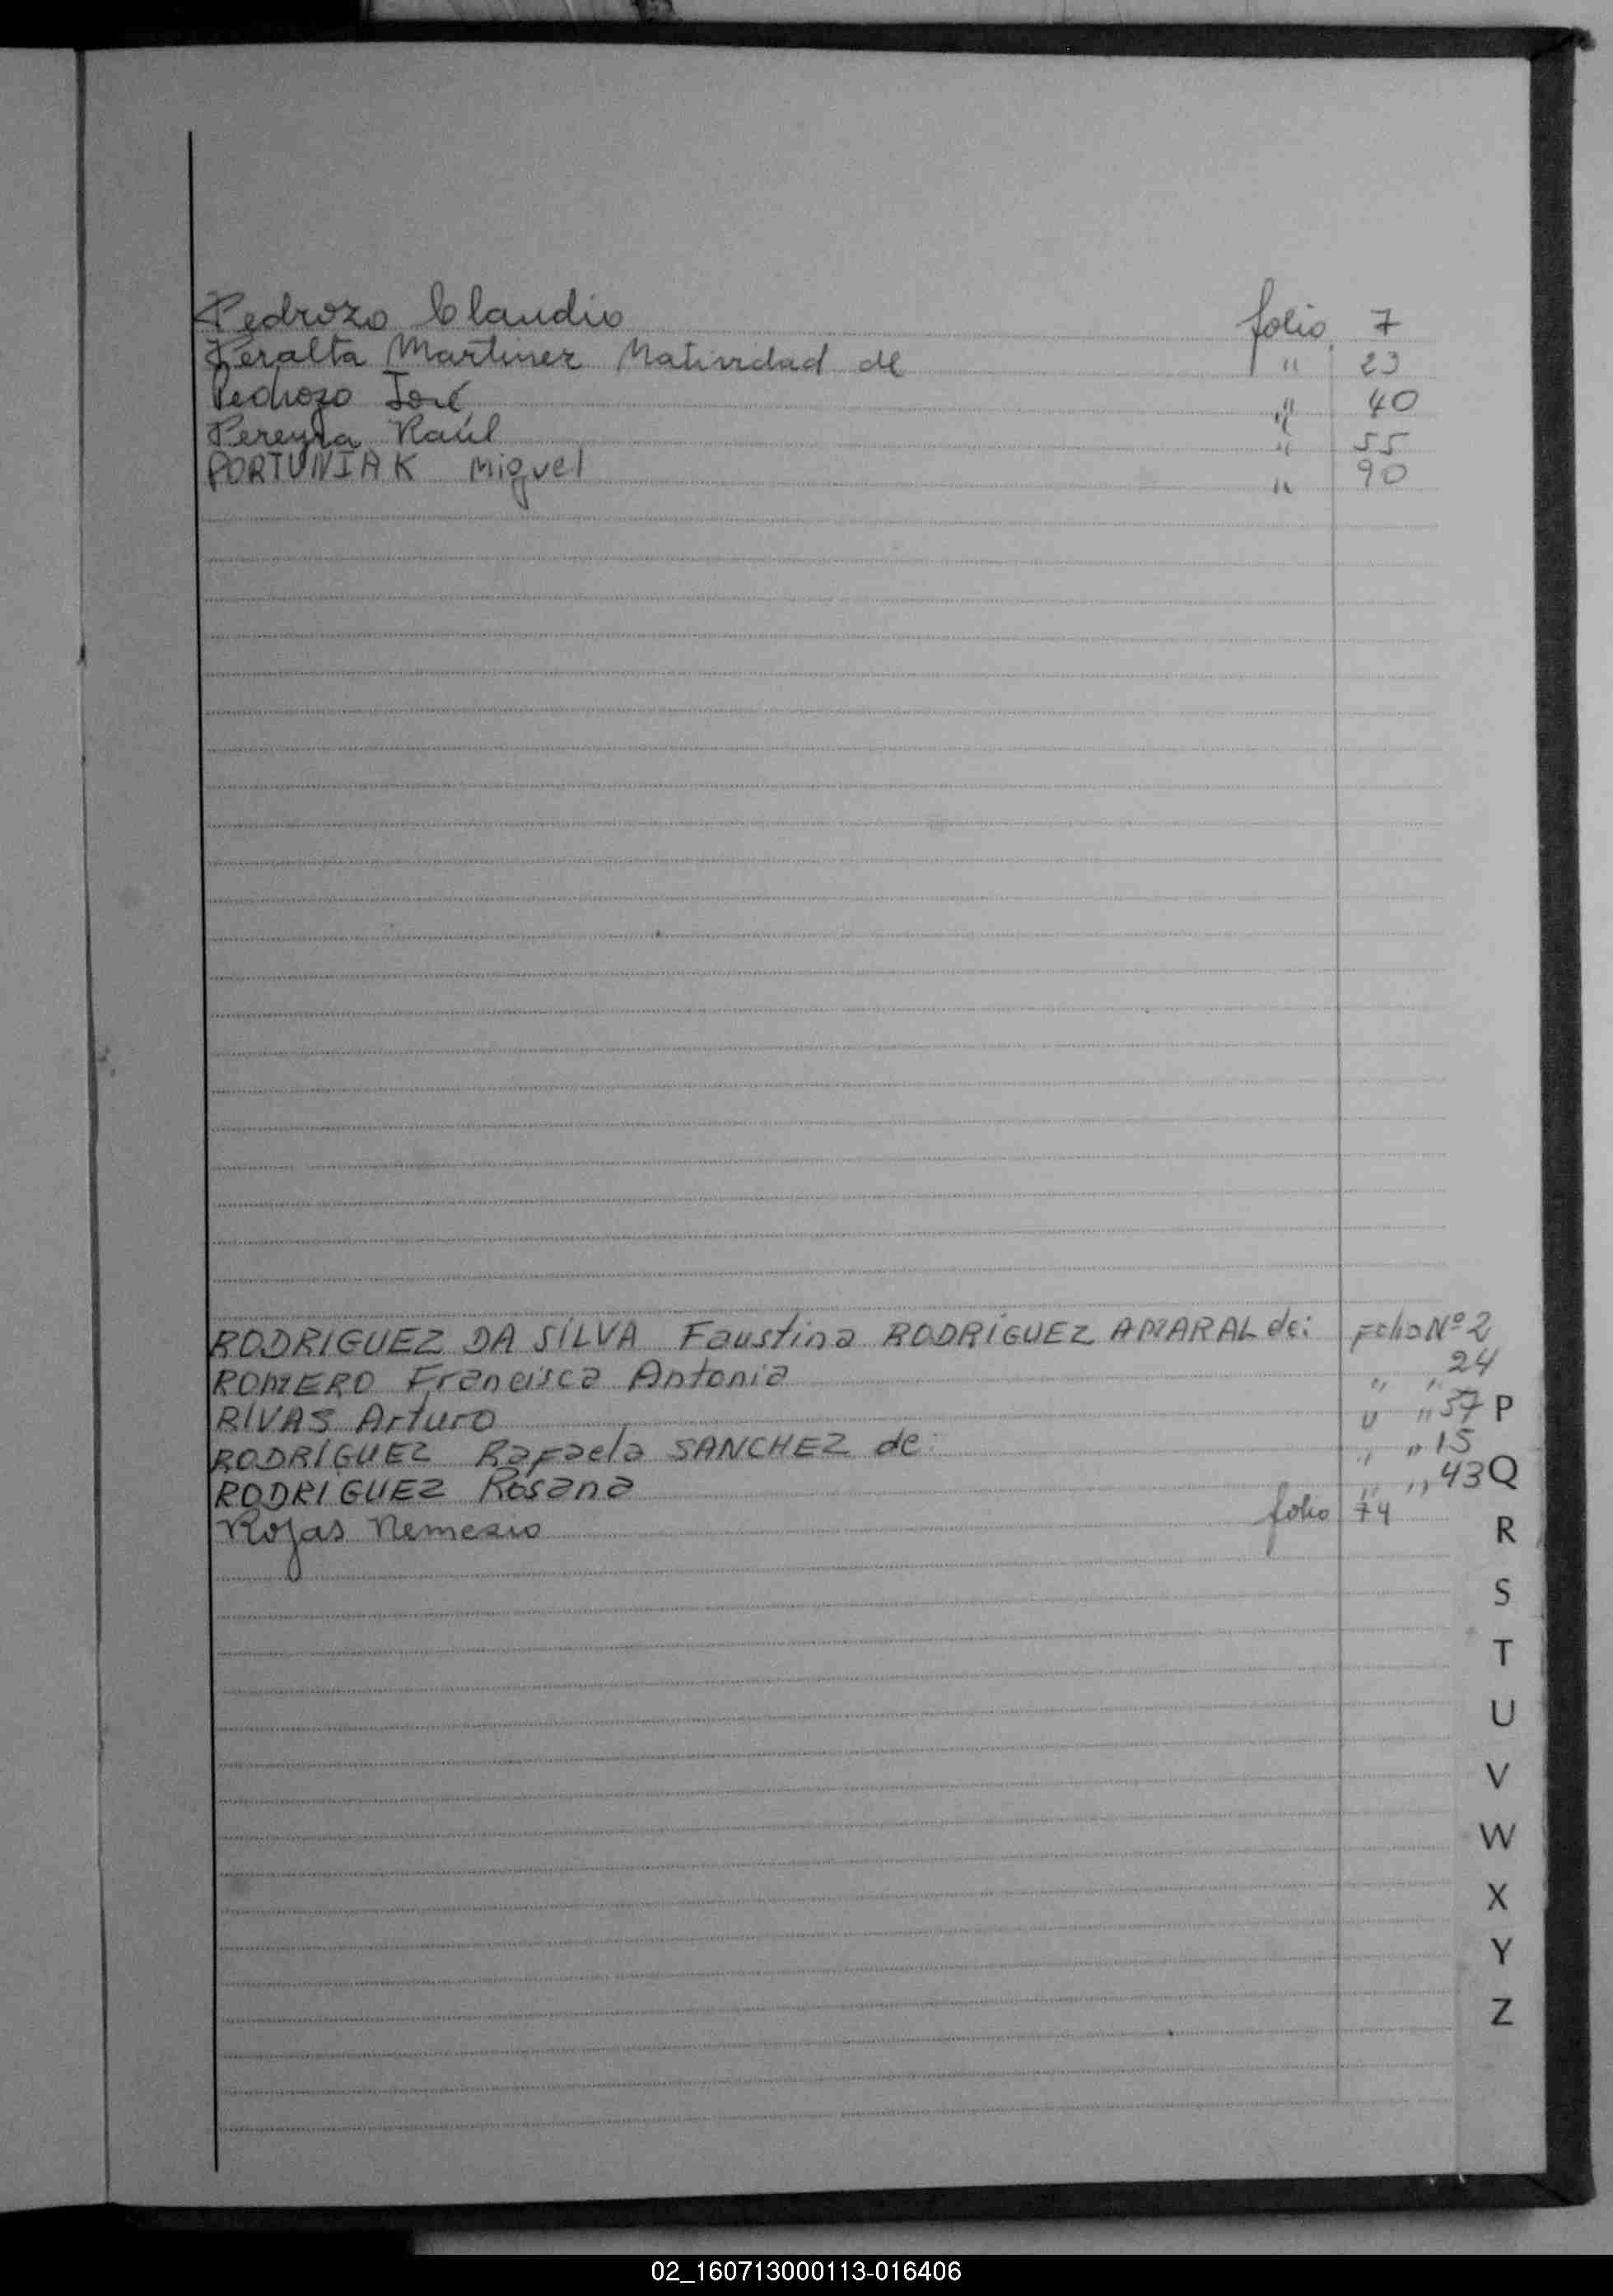 Pedrozo Claudio folio 7
Peralta Martinez Natividad de " 23
Pedrozo José " 40
Pereyra Raúl " 55
PORTUNIAK Miguel " 90
RODRIGUEZ DA SILVA Faustina RODRÍGUEZ AMARAL de: Folio Nº 2
ROMERO Francisca Antonia " " 24
RIVAS Arturo " " 37
P
RODRÍGUEZ Rafaela SANCHEZ de " " 15
RODRIGUEZ Rosana " " 43
Q
Rojas Nemesio folio 74
R
S
T
U
V
W
X
Y
Z
02_160713000113-016406